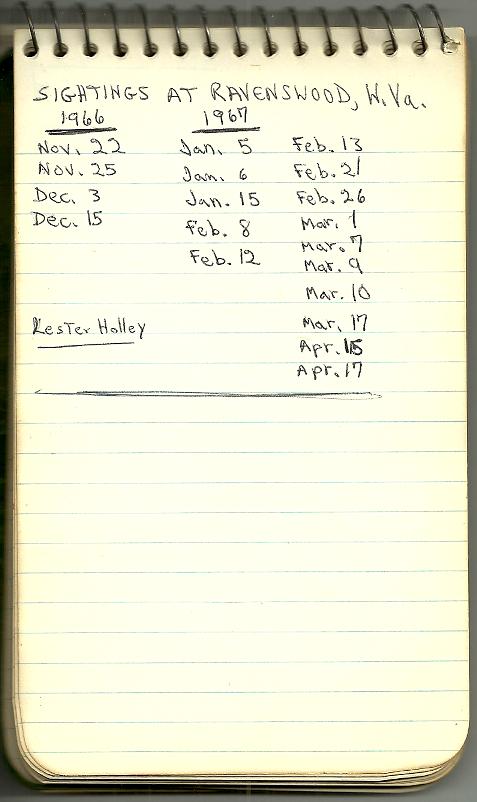 SIGHTINGS AT RAVENSWOOD, W.Va.
1966 1967
Nov. 22 Jan. 5 Feb. 13
Nov. 25 Jan. 6 Feb. 21
Dec. 3 Jan. 15 Feb. 26
Dec. 15 Feb. 8 Mar. 1
Feb. 12 Mar. 7
Mar. 9
Mar. 10
Lester Holley Mar. 17
Apr. 15
Apr. 17